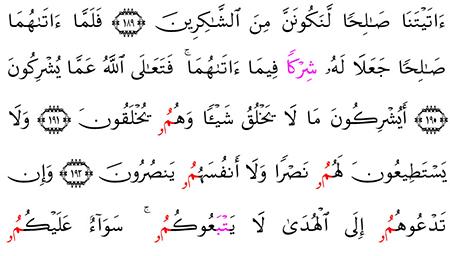 ءَاتَيْتَنَا صَٰلِحًا لَّنَكُونَنَّ مِنَ ٱلشَّٰكِرِينَ ﴿١٨٩﴾ فَلَمَّا ءَاتَىٰهُمَا
صَٰلِحًا جَعَلَا لَهُۥ شِرْكًا فِيمَا ءَاتَىٰهُمَا ۚ فَتَعَٰلَى ٱللَّهُ عَمَّا يُشْرِكُونَ
﴿١٩٠﴾ أَيُشْرِكُونَ مَا لَا يَخْلُقُ شَيْـًٔا وَهُمُۥ يُخْلَقُونَ ﴿١٩١﴾ وَلَا
يَسْتَطِيعُونَ لَهُمُۥ نَصْرًا وَلَا أَنفُسَهُمُۥ يَنصُرُونَ ﴿١٩٢﴾ وَإِن
تَدْعُوهُمُۥ إِلَى ٱلْهُدَىٰ لَا يَتْبَعُوكُمُۥ ۚ سَوَآءٌ عَلَيْكُمُۥ